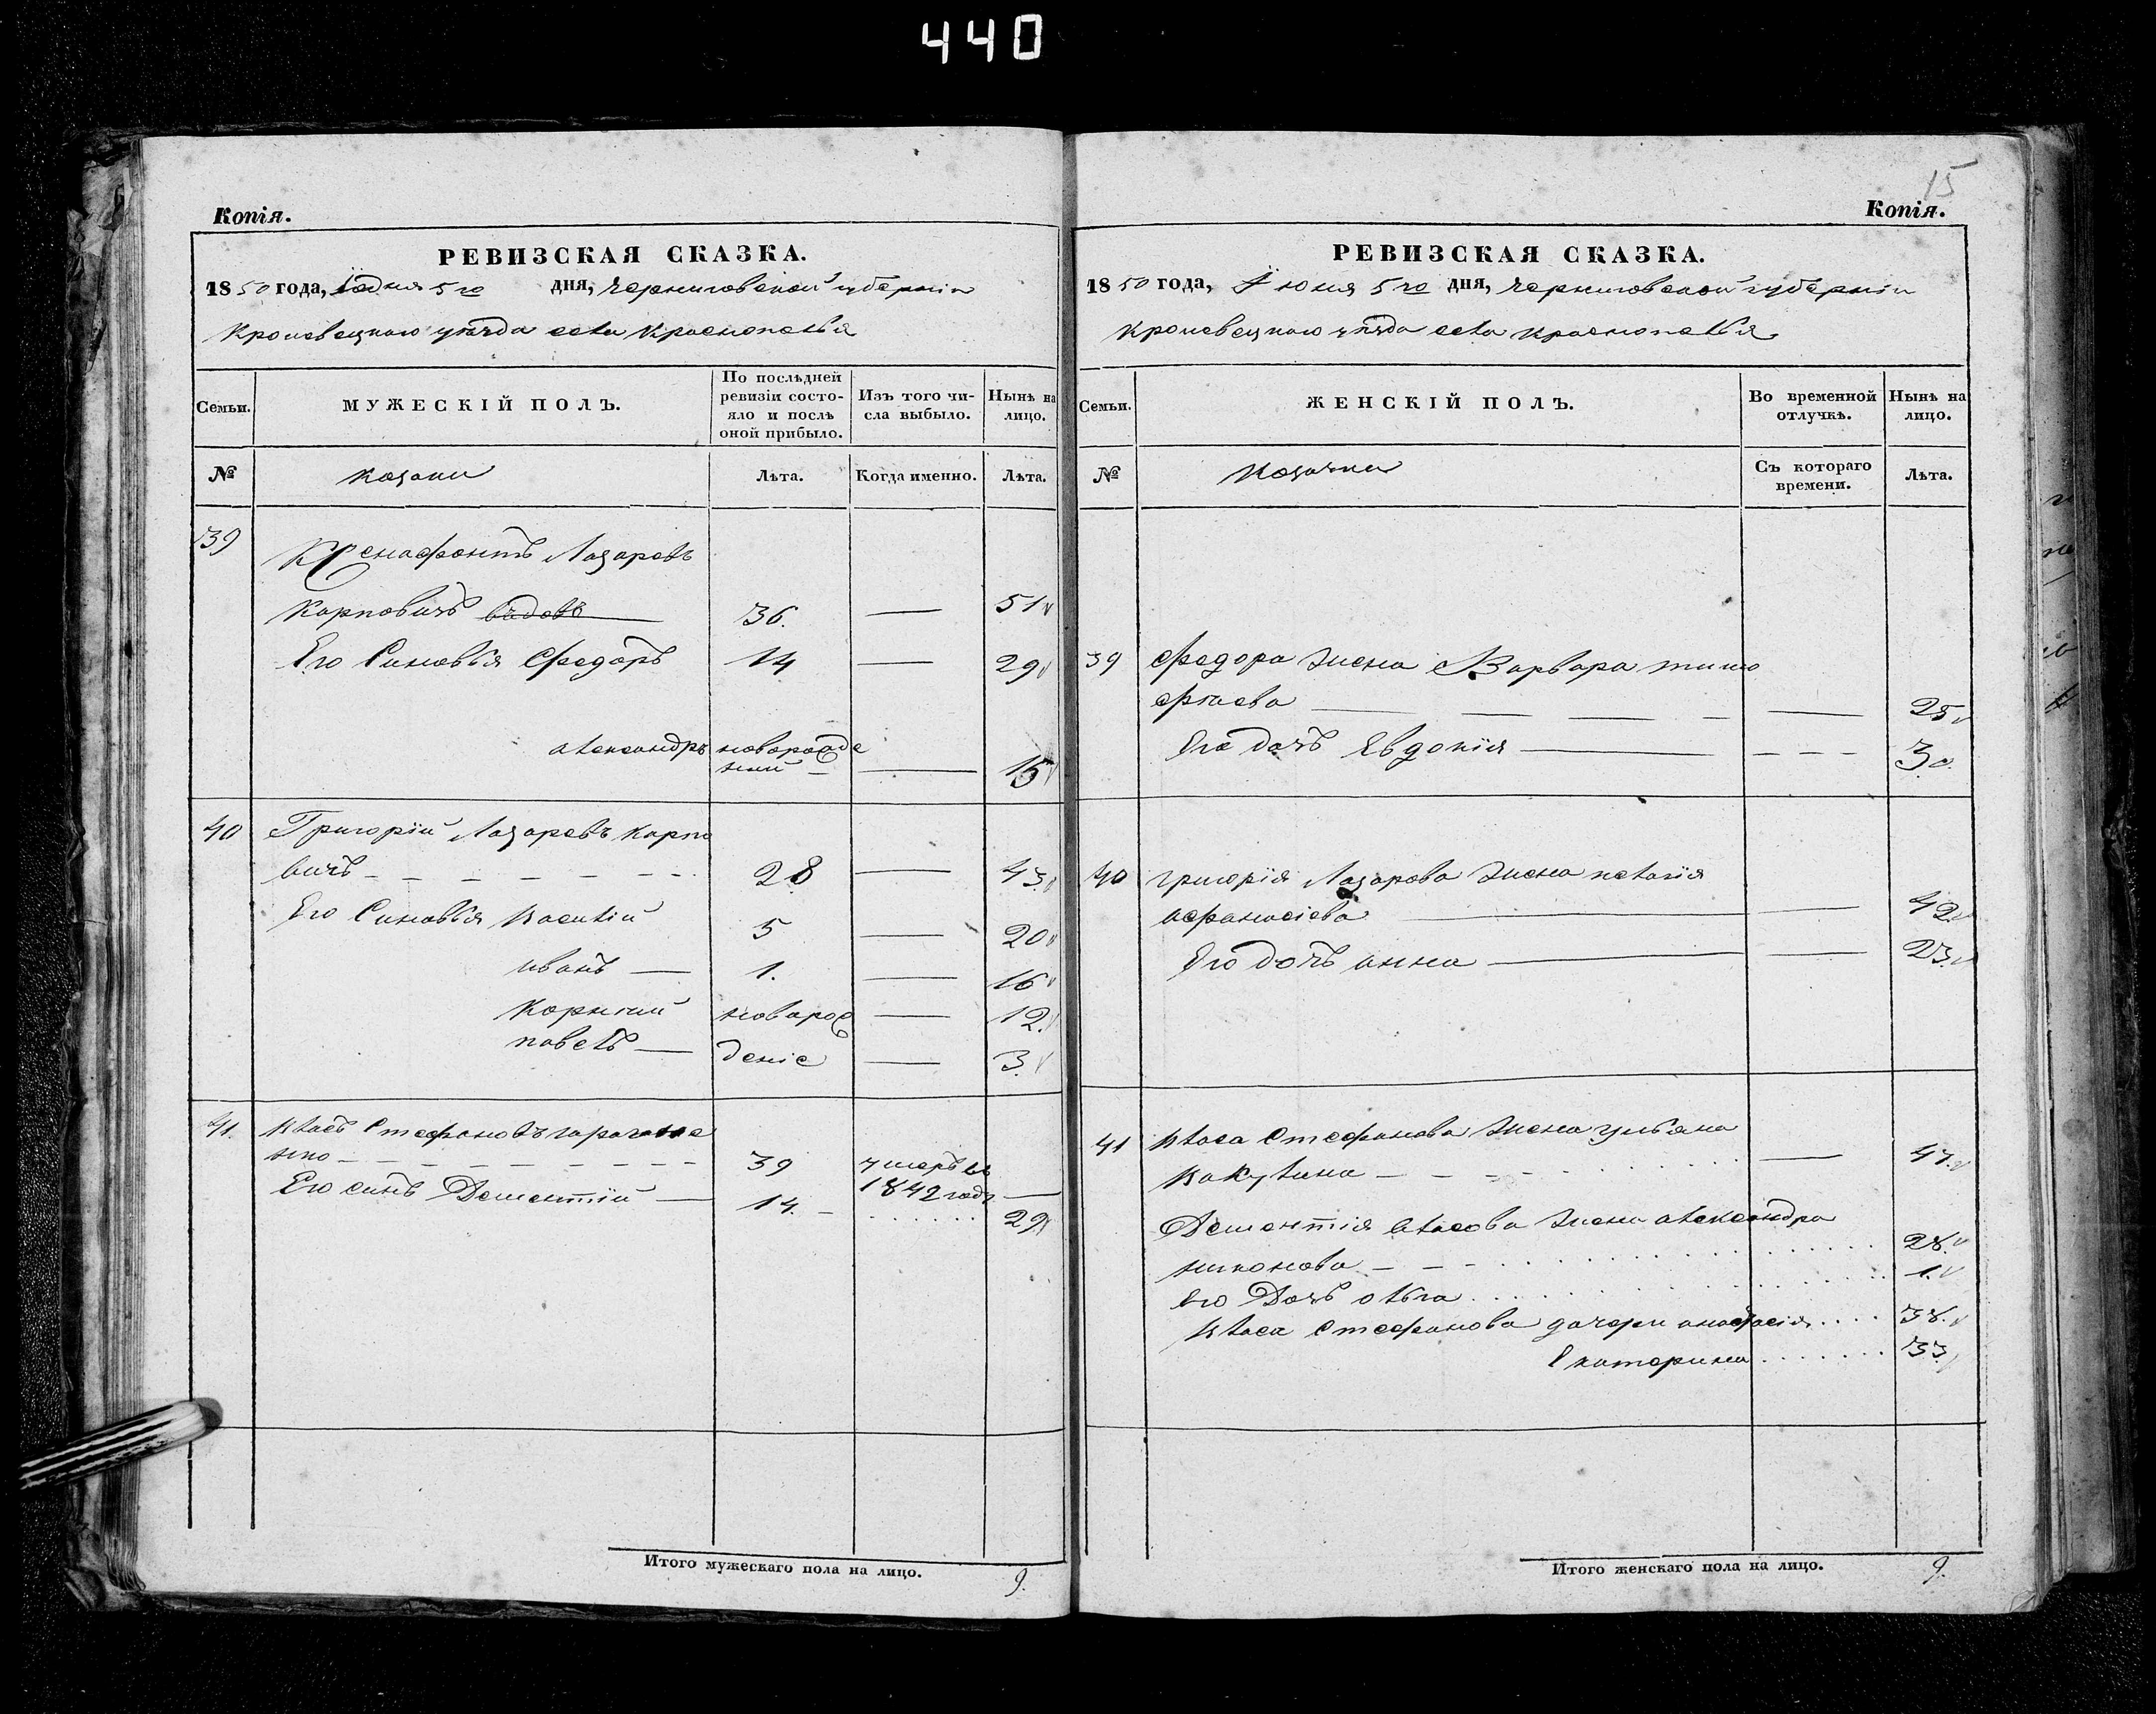 440
Копія.
РЕВИЗСКАЯ СКАЗКА.
1850 года, Іюня 5го дня, Черниговской губерніи
Кролевецкаго уѣзда села Краснополья
Семьи.
МУЖЕСКІЙ ПОЛЪ.
По послѣдней ревизіи состо-
яло и послѣ
оной прибыло.
Изъ того чи-
сла выбыло.
Нынѣ на
лицо.
№
Козаки
Лѣта.
Когда именно.
Лѣта.
39
Ксенафонтъ Лазаревъ
Карповичъ 36. — 51
Его Сыновья Федоръ 14 — 29
александръ новорожде
ный — 15
40 Григорій Лазаревъ карпо
вичъ 28 — 43.
Его Сыновья Василій 5 — 20
иванъ — 1. — 16
Корнѣй новарож — 12.
павелъ — деніе — 3.
41. Власъ Стефановъ
39 умеръ въ
1842 годѣ —
Его сынъ Дементій — 14. — 29
Итого мужескаго пола на лицо. 9.
15
Копія.
РЕВИЗСКАЯ СКАЗКА.
1850 года, Іюня 5го дня, Черниговской губерніи
Кролевецкаго уѣзда села Краснополья
Семьи.
ЖЕНСКІЙ ПОЛЪ.
Во временной
отлучкѣ.
Нынѣ на
лицо.
№
Козачки
Съ котораго
времени.
Лѣта.
39 Федора жена Варвара тимо
фѣева — 25
Его дочъ Евдокія — 3.
40 григорія Лазарева жена пелагія
афанасіева — 42
Его дочъ анна — 23.
41 Власа Стефанова жена ульяна
Вакулина — 47.
Дементія власова жена александра
никонова — 28.
Его Дочъ ольга 1.
Власа Стефанова дочери анастасія 38.
Екатерина 33
Итого женскаго пола на лицо. 9.